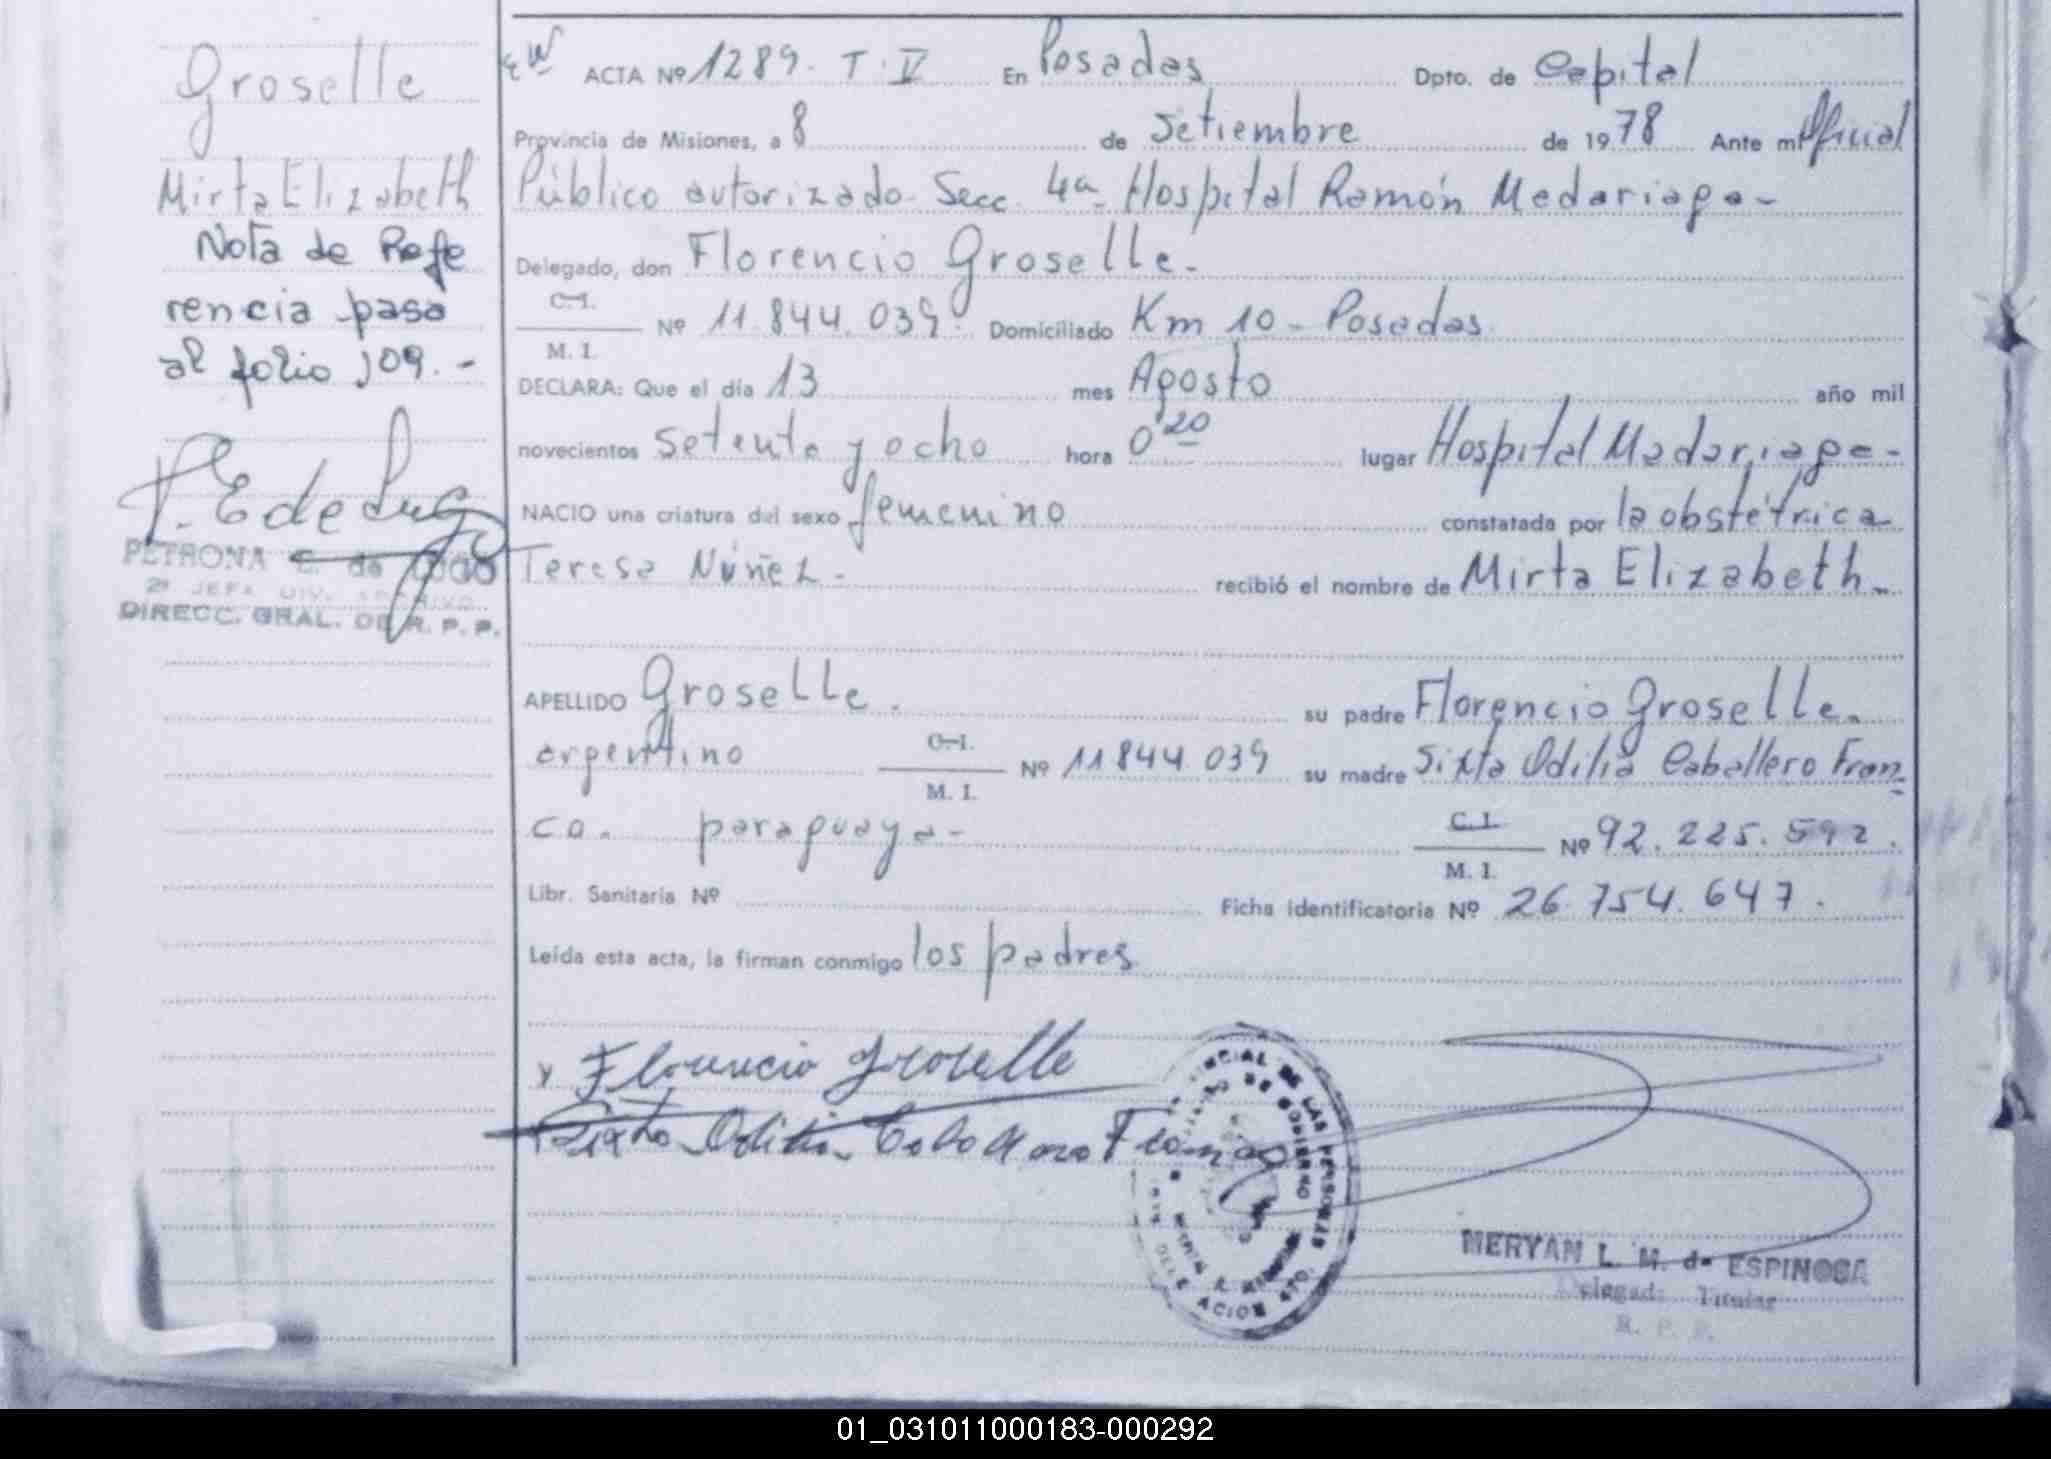 Groselle
Mirta Elizabeth
Nota de Refe
rencia pasa
al folio 109.-
PETRONA E. de LUGO
2º JEFA DIV. ARCHIVO
DIRECC. GRAL. DE R. P. P.
ACTA Nº 1289. T. V En Posadas Dpto. de Capital
Provincia de Misiones, a 8 de Setiembre de 1978 Ante mí Oficial
Público autorizado Secc. 4a Hospital Ramón Madariaga-
Delegado, don Florencio Groselle.
C.I.
Nº 11.844.039. Domiciliado Km 10 - Posadas
M. I.
DECLARA: Que el día 13 mes Agosto año mil
novecientos setenta y ocho hora 0 20 lugar Hospital Madariaga-
NACIO una criatura del sexo femenino constatada por la obstétrica
Teresa Núñez. recibió el nombre de Mirta Elizabeth.
APELLIDO Groselle. su padre Florencio Groselle.
C.I.
argentino Nº 11844.039 su madre Sixta Odilia Caballero Fran-
M. I.
co. paraguaya- C.I. Nº 92.225.592.
M. I.
Libr. Sanitaria Nº Ficha Identificatoria Nº 26.754.647.
Leída esta acta, la firman conmigo los padres
y Florencio Groselle
Sixta Odilia Caballero Franco
MERYAN L. M. de ESPINOSA
Delegada Titular
R. P. P.
01_031011000183-000292